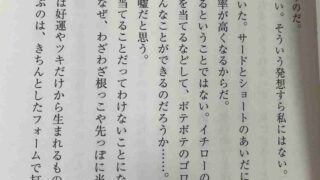 のだ。
い。そういう発想すら私にはない。
率が高くなるからだ。
いた。サードとショートのあいだに
るということではない。イチローの
を当てるなどして、ボテボテのゴロ
んなことができるのだろうか……。
嘘だと思う。
当てることだってわけないことにな
なぜ、わざわざ根っこや先っぽに当
は好運やツキだけから生まれるもの
ぶのは、きちんとしたフォームで打